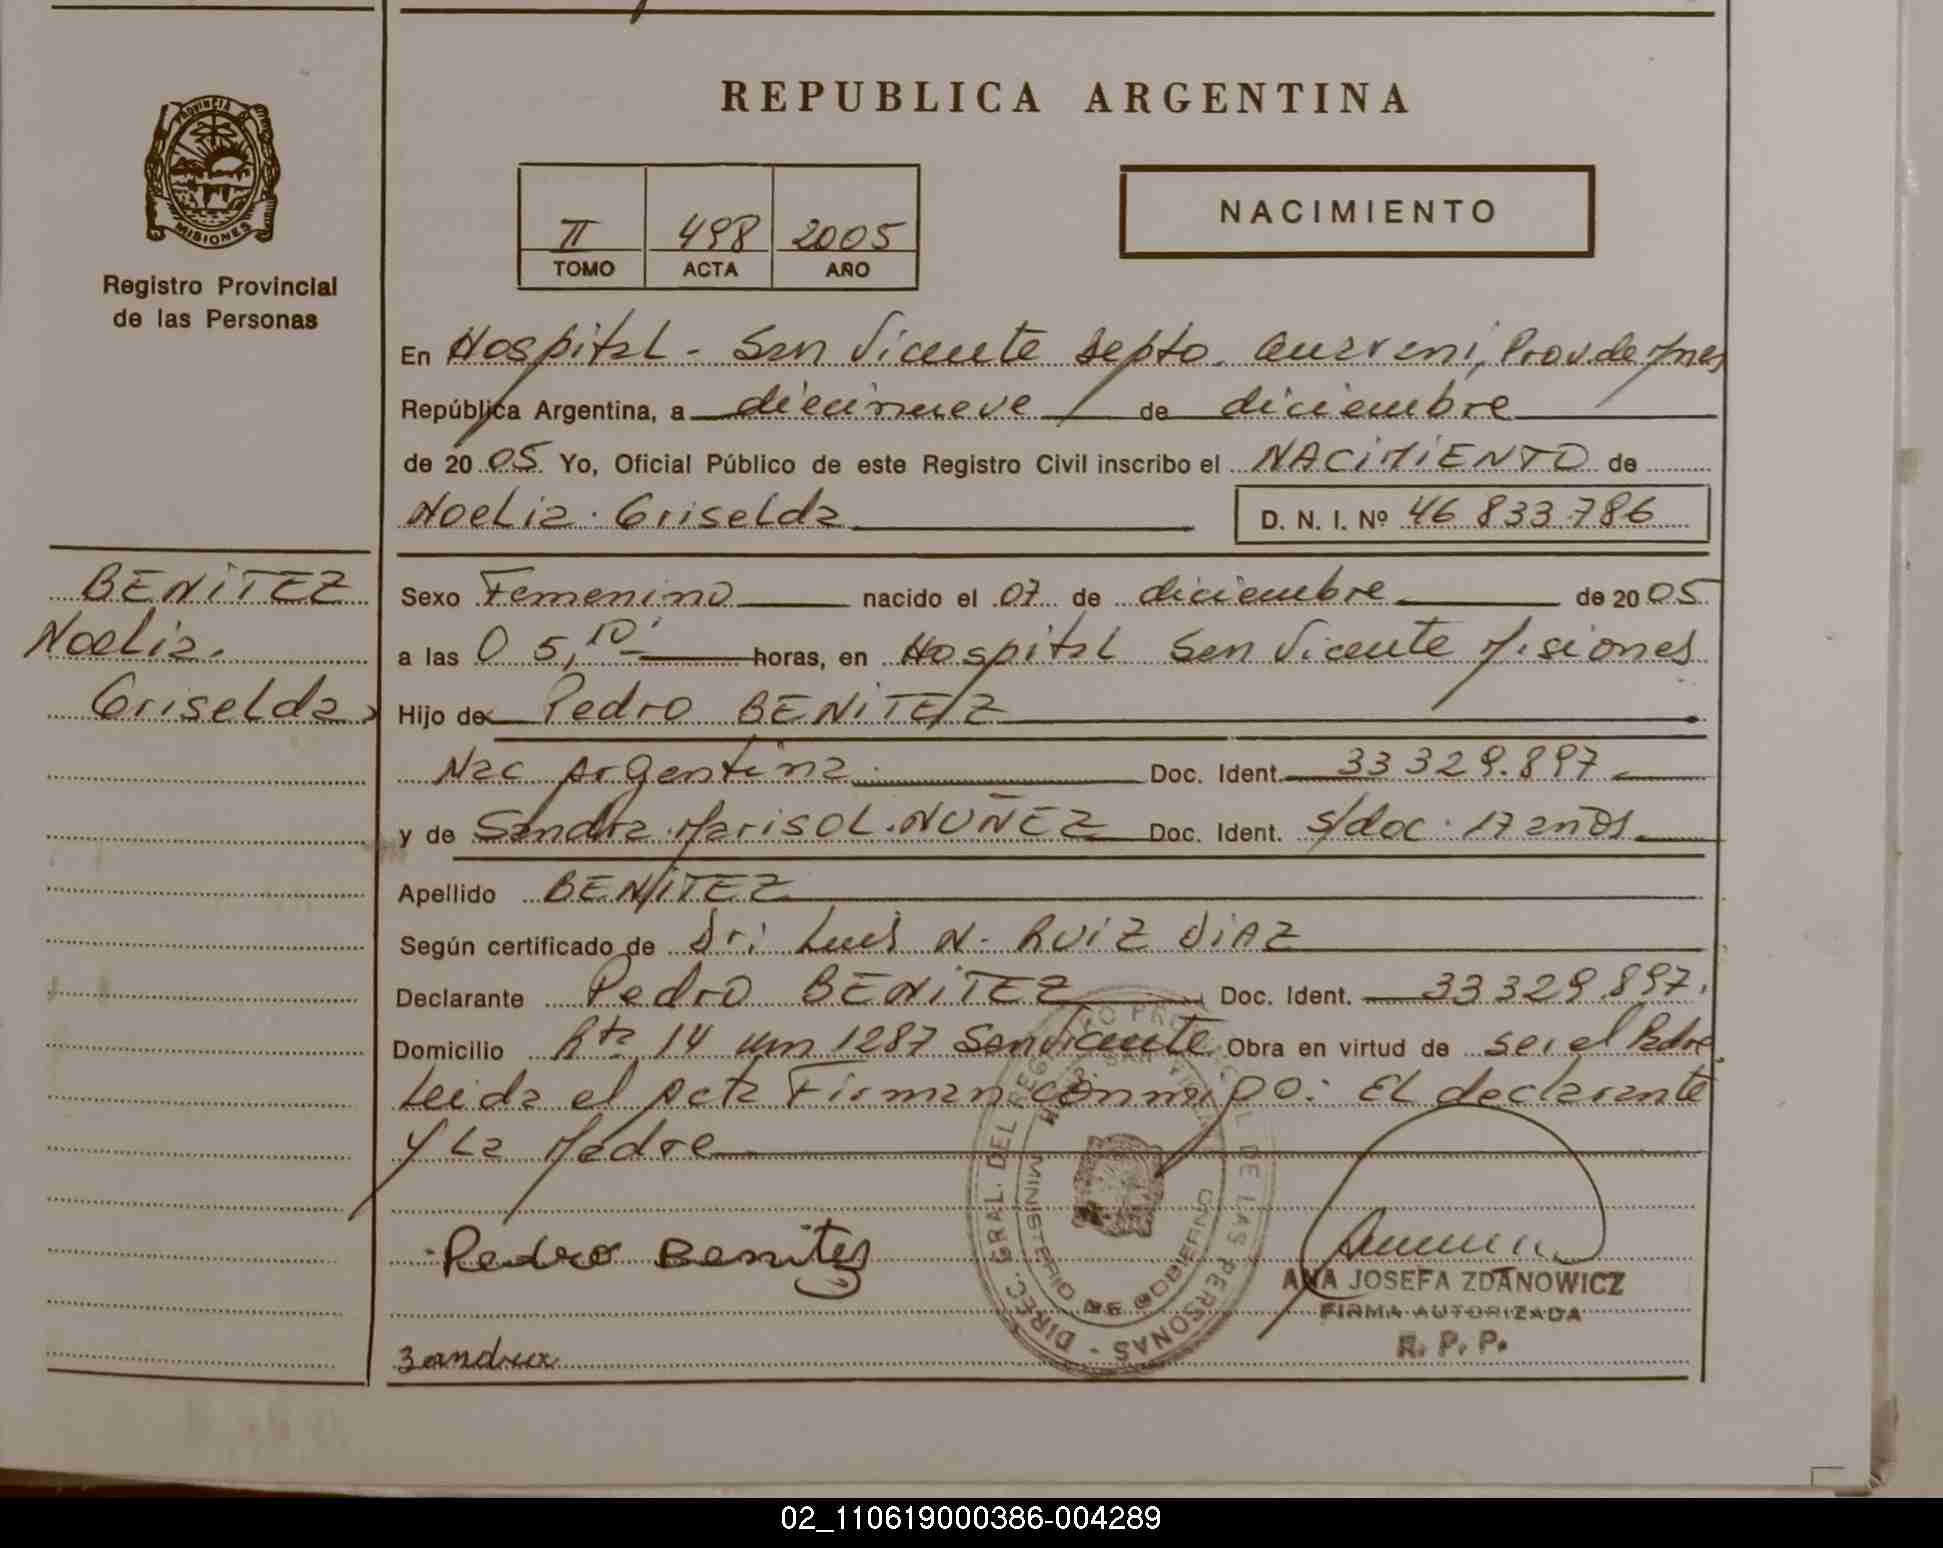 REPUBLICA ARGENTINA
PROVINCIA
MISIONES
Registro Provincial
de las Personas
II 498 2005
TOMO ACTA AÑO
NACIMIENTO
En Hospital - San Vicente Depto. Guaraní, Prov. de Mnes
República Argentina, a diecinueve de diciembre
de 2005 Yo, Oficial Público de este Registro Civil inscribo el NACIMIENTO de
Noelia Griselda D. N. I. Nº 46 833.786
BENITEZ
Noelia
Griselda
Sexo Femenino nacido el 07 de diciembre de 2005
a las 05,10' horas, en Hospital San Vicente Misiones
Hijo de Pedro BENITEZ
Nac Argentina Doc. Ident. 33 329.897
y de Sandra Marisol NUÑEZ Doc. Ident. s/doc. 17 años
Apellido BENITEZ
Según certificado de Dr: Luis N. RUIZ DIAZ
Declarante Pedro BENITEZ Doc. Ident. 33 329 897.
Domicilio Rta 14 km 1287 San Vicente Obra en virtud de ser el Padre.
Leida el acta Firman conmigo: El declarante
y La Madre
Pedro Benitez
DIREC. GRAL. DEL REGISTRO PROVINCIAL DE LAS PERSONAS -
MINISTERIO DE GOBIERNO
ANA JOSEFA ZDANOWICZ
FIRMA AUTORIZADA
R. P. P.
Zandra
02_110619000386-004289